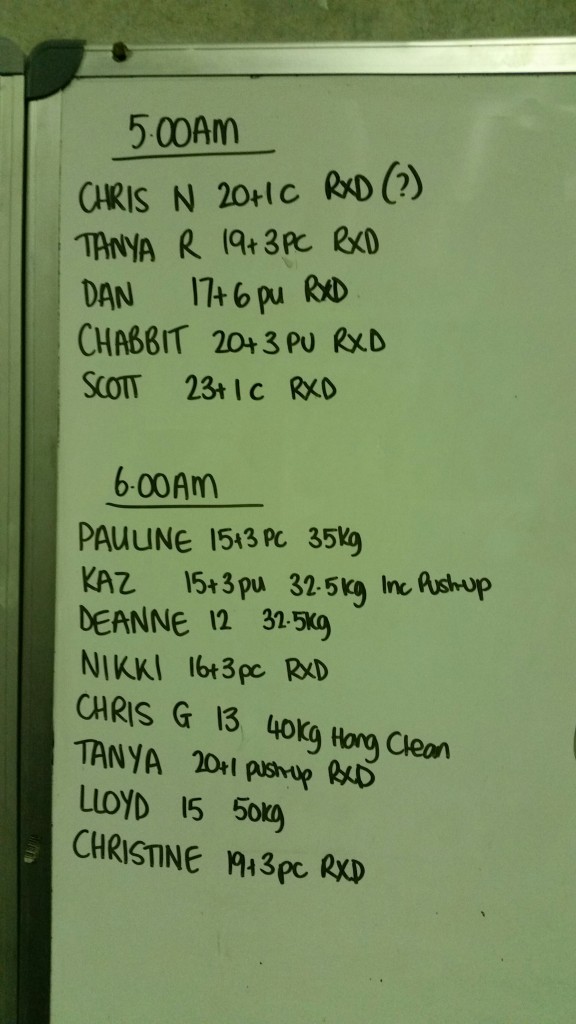 5.00AM
CHRIS N 20+1C RXD (?)
TANYA R 19+3PC RXD
DAN 17+6 pu RXD
CHABBIT 20+3 PU RXD
SCOTT 23+1C RXD
6.00AM
PAULINE 15+3 PC 35kg
KAZ 15+3 pu 32.5kg Inc Push-up
DEANNE 12 32.5kg
NIKKI 16+3pc RXD
CHRIS G 13 40kg Hang Clean
TANYA 20+1 push-up RXD
LLOYD 15 50kg
CHRISTINE 19+3pc RXD